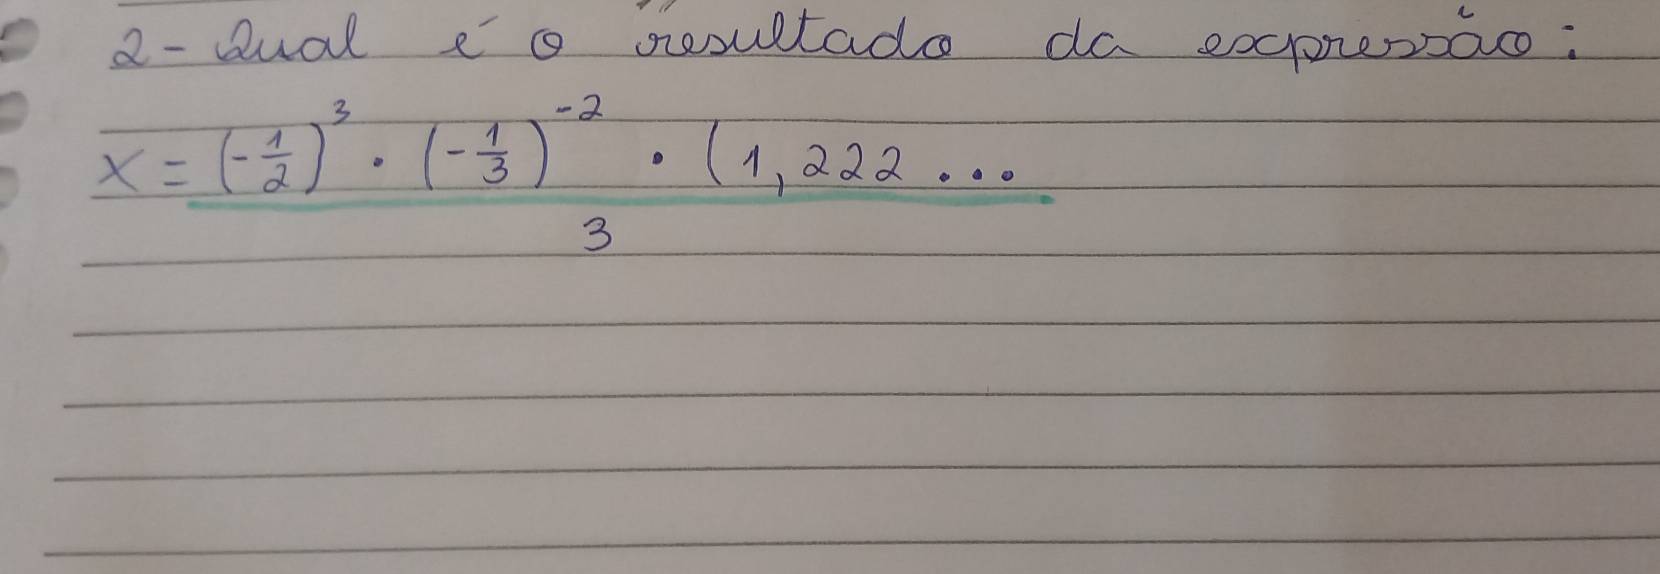 2- Qual é o resultado da expressão:
x = (-1/2)³ · (-1/3)⁻² · (1,222...
3